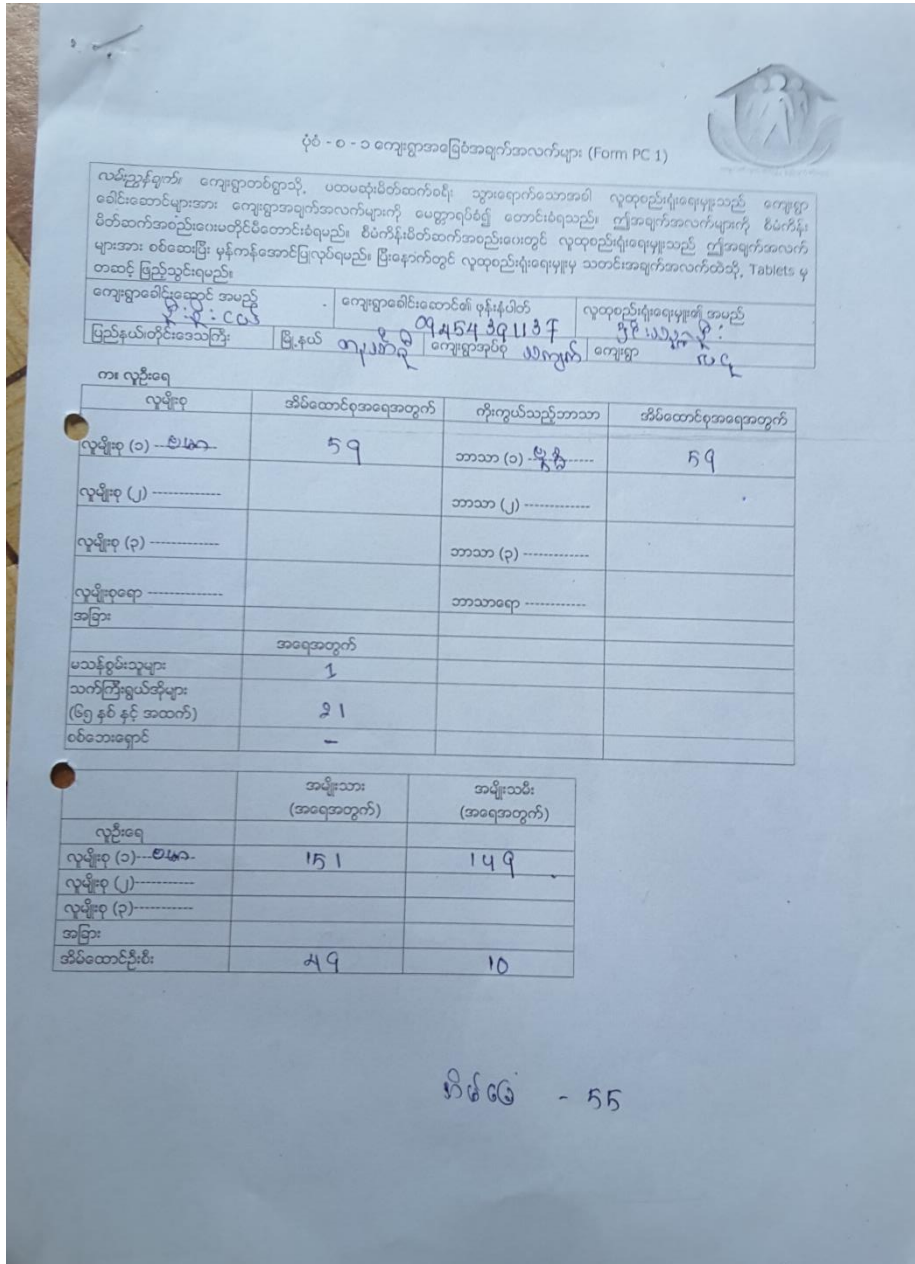 ပုံစံ - စ - ၁ ကျေးရွာအခြေခံအချက်အလက်များ (Form PC 1)
လမ်းညွှန်ချက်။ ကျေးရွာတစ်ရွာသို့ ပထမဆုံးမိတ်ဆက်ခရီး သွားရောက်သောအခါ လူထုစည်းရုံးရေးမှူးသည် ကျေးရွာ
ခေါင်းဆောင်များအား ကျေးရွာအချက်အလက်များကို မေတ္တာရပ်ခံ၍ တောင်းခံရသည်။ ဤအချက်အလက်များကို စီမံကိန်း
မိတ်ဆက်အစည်းဝေးမတိုင်မီတောင်းခံရမည်။ စီမံကိန်းမိတ်ဆက်အစည်းဝေးတွင် လူထုစည်းရုံးရေးမှူးသည် ဤအချက်အလက်
များအား စစ်ဆေးပြီး မှန်ကန်အောင်ပြုလုပ်ရမည်။ ပြီးနောက်တွင် လူထုစည်းရုံးရေးမှူးမှ သတင်းအချက်အလက်ထဲသို့ Tablets မှ
တဆင့် ဖြည့်သွင်းရမည်။
ကျေးရွာခေါင်းဆောင် အမည် ကျေးရွာခေါင်းဆောင်၏ ဖုန်းနံပါတ် လူထုစည်းရုံးရေးမှူး၏ အမည်
09454391137
ပြည်နယ်၊တိုင်းဒေသကြီး မြို့နယ် ကျေးရွာအုပ်စု ကျေးရွာ
က။ လူဦးရေ
လူမျိုးစု အိမ်ထောင်စုအရေအတွက် ကိုးကွယ်သည့်ဘာသာ အိမ်ထောင်စုအရေအတွက်
လူမျိုးစု (၁) ---ဗမာ--- 59 ဘာသာ (၁) --ဗုဒ္ဓ------ 59
လူမျိုးစု (၂) ------------- ဘာသာ (၂) -------------
လူမျိုးစု (၃) ------------- ဘာသာ (၃) -------------
လူမျိုးစုရော -------------- ဘာသာရော ------------
အခြား
အရေအတွက်
မသန်စွမ်းသူများ 1
သက်ကြီးရွယ်အိုများ
(၆၅ နှစ် နှင့် အထက်) 21
စစ်ဘေးရှောင် -
အမျိုးသား အမျိုးသမီး
(အရေအတွက်) (အရေအတွက်)
လူဦးရေ
လူမျိုးစု (၁)---ဗမာ-- 151 149
လူမျိုးစု (၂)-----------
လူမျိုးစု (၃)-----------
အခြား
အိမ်ထောင်ဦးစီး 49 10
အိမ်ခြေ - 55